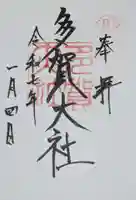 奉拝
多賀大社
令和七年
一月四日